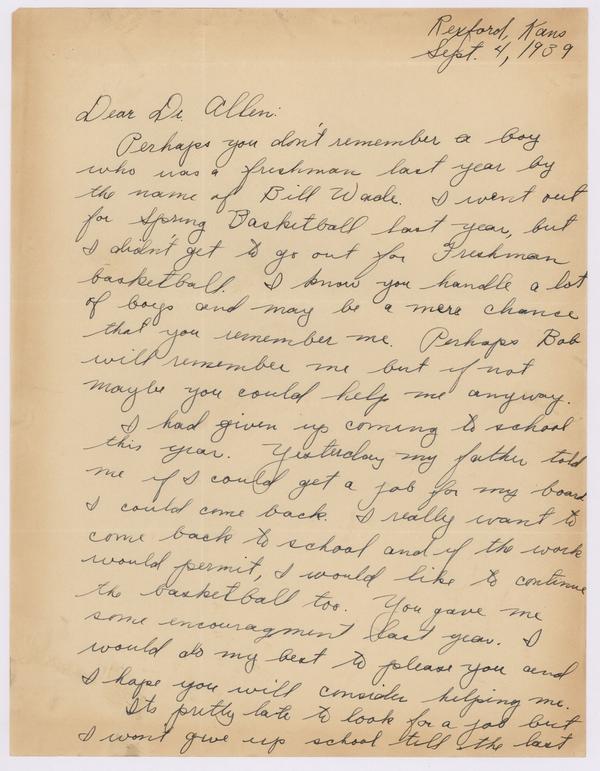 Rexford, Kans
Sept. 4, 1939
Dear Dr. Allen:
Perhaps you don't remember a boy
who was a freshman last year by
the name of Bill Wade. I went out
for Spring Basketball last year, but
I didn't get to go out for Freshman
basketball. I know you handle a lot
of boys and may be a mere chance
that you remember me. Perhaps Bob
will remember me but if not
maybe you could help me anyway.
I had given up coming to school
this year. Yesterday my father told
me if I could get a job for my board
I could come back. I really want to
come back to school and if the work
would permit, I would like to continue
the basketball too. You gave me
some encouragment last year. I
would do my best to please you and
I hope you will consider helping me.
Its pretty late to look for a job but
I wont give up school till the last